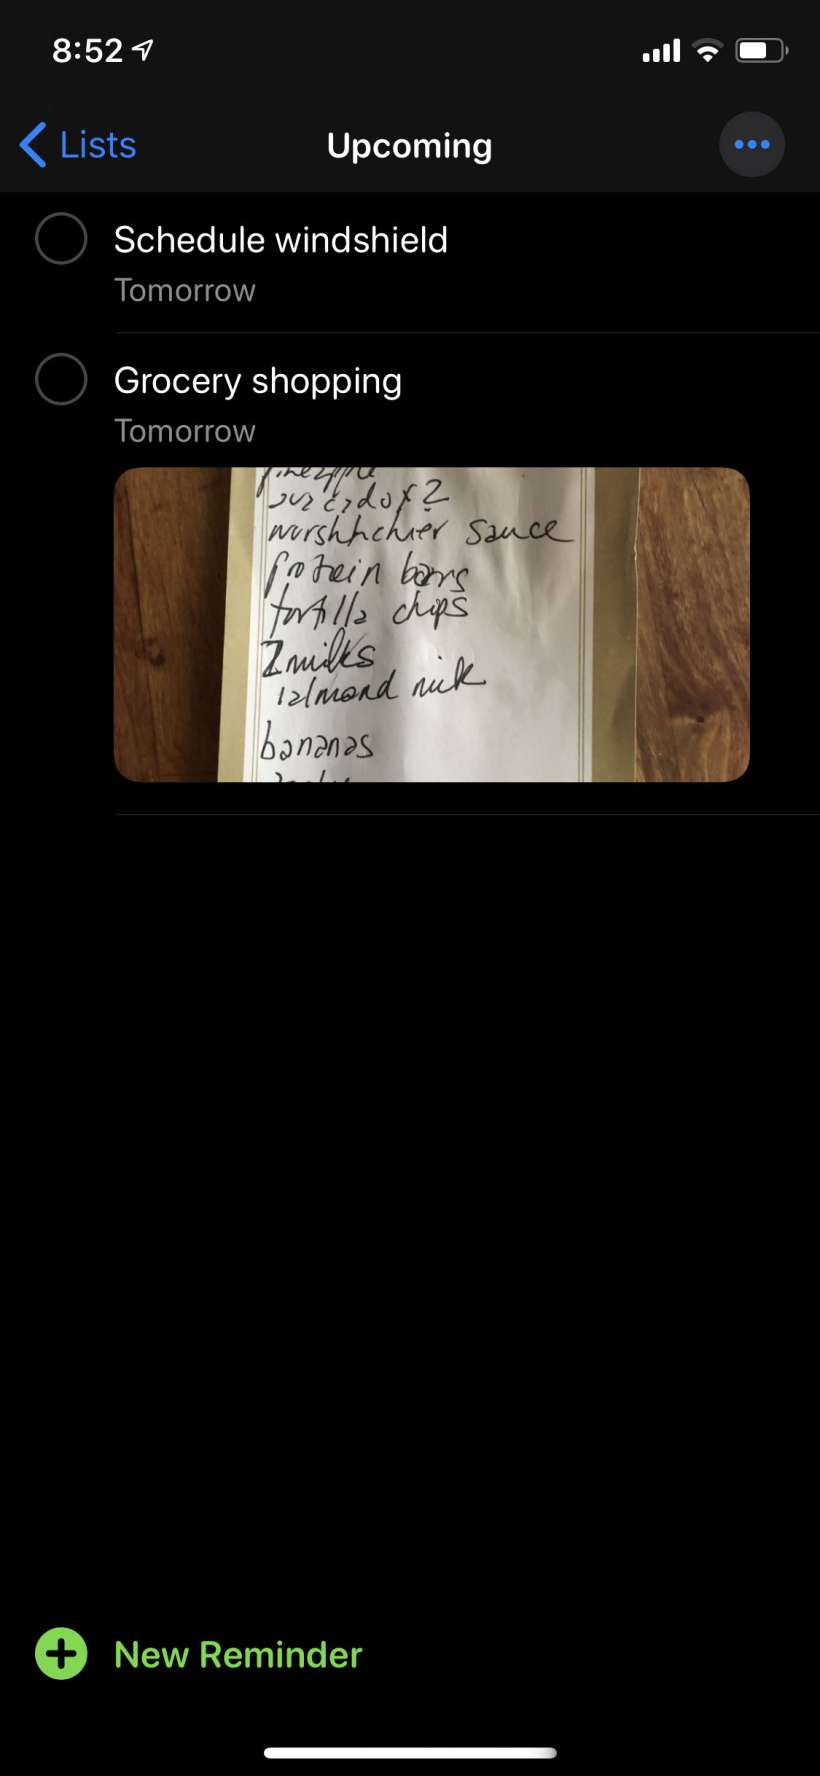 8:52
Lists
Upcoming
Schedule windshield
Tomorrow
Grocery shopping
Tomorrow
sauce
protein bars
tortilla chips
2 milks
1 almond
bananas
New Reminder